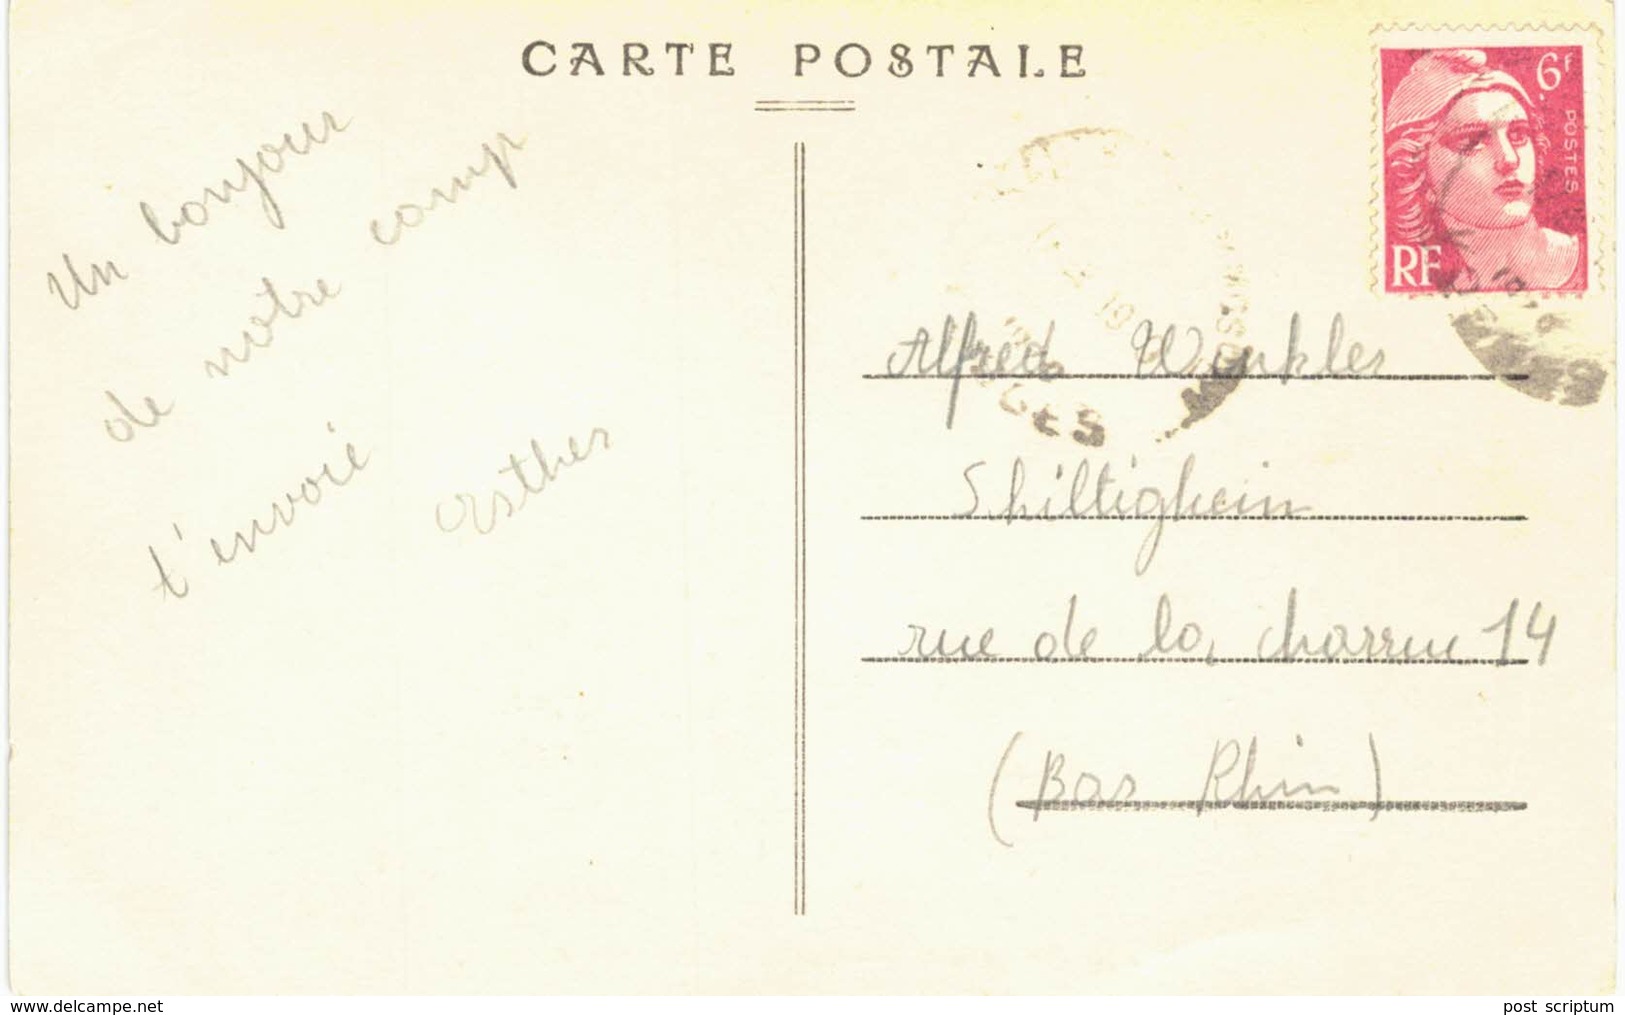 CARTE POSTALE
6F
POSTES
RF
Un bonjour
de notre camp
t'envoie
Esther
Alfred Winkler
Shiltigheim
rue de la charrue 14
(Bas Rhin)
GES
www.delcampe.net
post scriptum